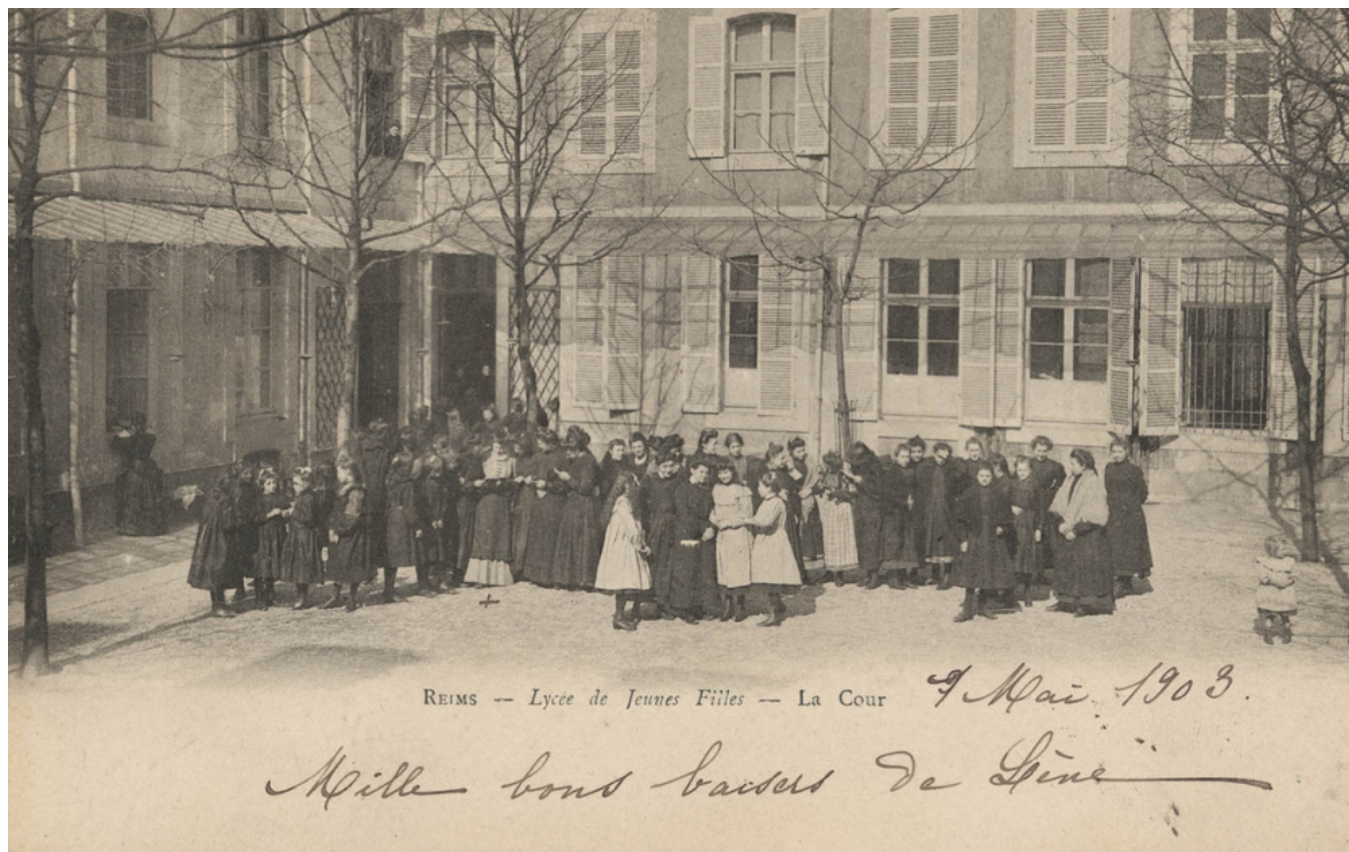 REIMS — Lycée de Jeunes Filles — La Cour 9 Mai 1903.
Mille bons baisers de Lène